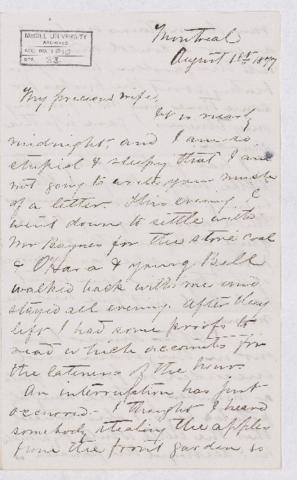 McGILL UNIVERSITY
ARCHIVES
ACC. NO.
REF.
Montreal
August 1877
My precious wife,
It is nearly
midnight, and I am so
stupid & sleepy that I am
not going to write you much
of a letter. This evening I
went down to settle with
Mr Baynes for the stove coal
& O'Hara & young Bell
walked back with me and
stayed all evening. After they
left I had some proofs to
read which accounts for
the lateness of the hour.
An interruption has just
occurred. I thought I heard
somebody stealing the apples
from the front garden so